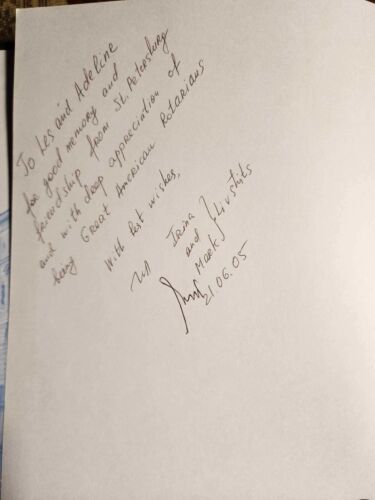 To Les and Adeline
for good memory and
friendship from St. Petersburg
and with deep appreciation of
being Great American Rotarians
With best wishes,
Irina
and Livshits
Mark
21.06.05